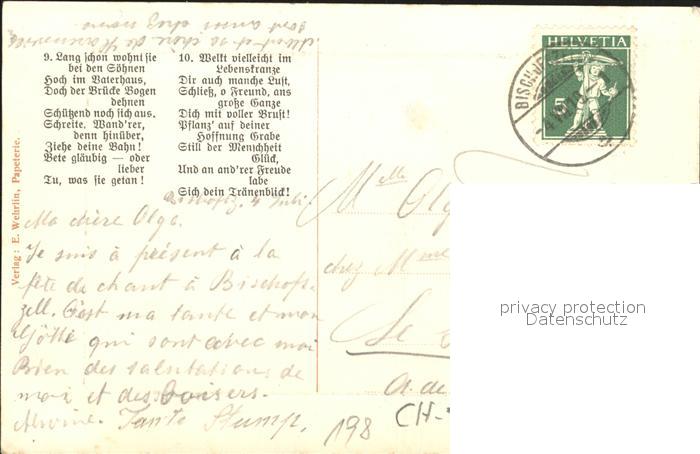 sont aussi chez nous
HELVETIA
5
9. Lang schon wohnt sie
bei den Söhnen
Hoch im Vaterhaus,
Doch der Brücke Bogen
dehnen
Schützend noch sich aus.
Schreite, Wand'rer,
denn hinüber,
Ziehe deine Bahn!
Bete gläubig — oder
lieber
Tu, was sie getan!
10. Welkt vielleicht im
Lebenskranze
Dir auch manche Lust,
Schließ, o Freund, ans
große Ganze
Dich mit voller Brust!
Pflanz' auf deiner
Hoffnung Grabe
Still der Menschheit
Glück,
Und an and'rer Freude
labe
Sich dein Tränenblick!
Verlag: E. Wehrlin, Papeterie.
4 Juli
Ma chère Olga.
Je suis à présent à la
fête de chant à Bischofs-
zell. C'est ma tante et mon
Götti qui sont avec moi
Bien des salutations de
moi et des baisers.
Alwine. Tante Stump,
Melle Olg
chez Mme
Le
A. de
198 CH-
privacy protection
Datenschutz